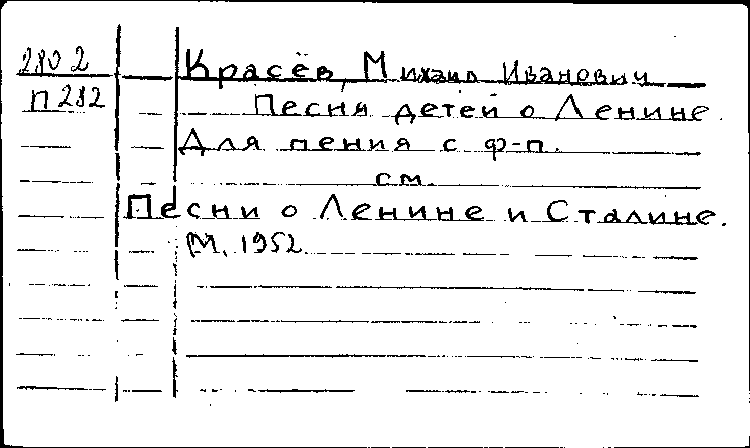 2802
П282
Красёв, Михаил Иванович
Песня детей о Ленине.
Для пения с ф-п.
см.
Песни о Ленине и Сталине.
М, 1952